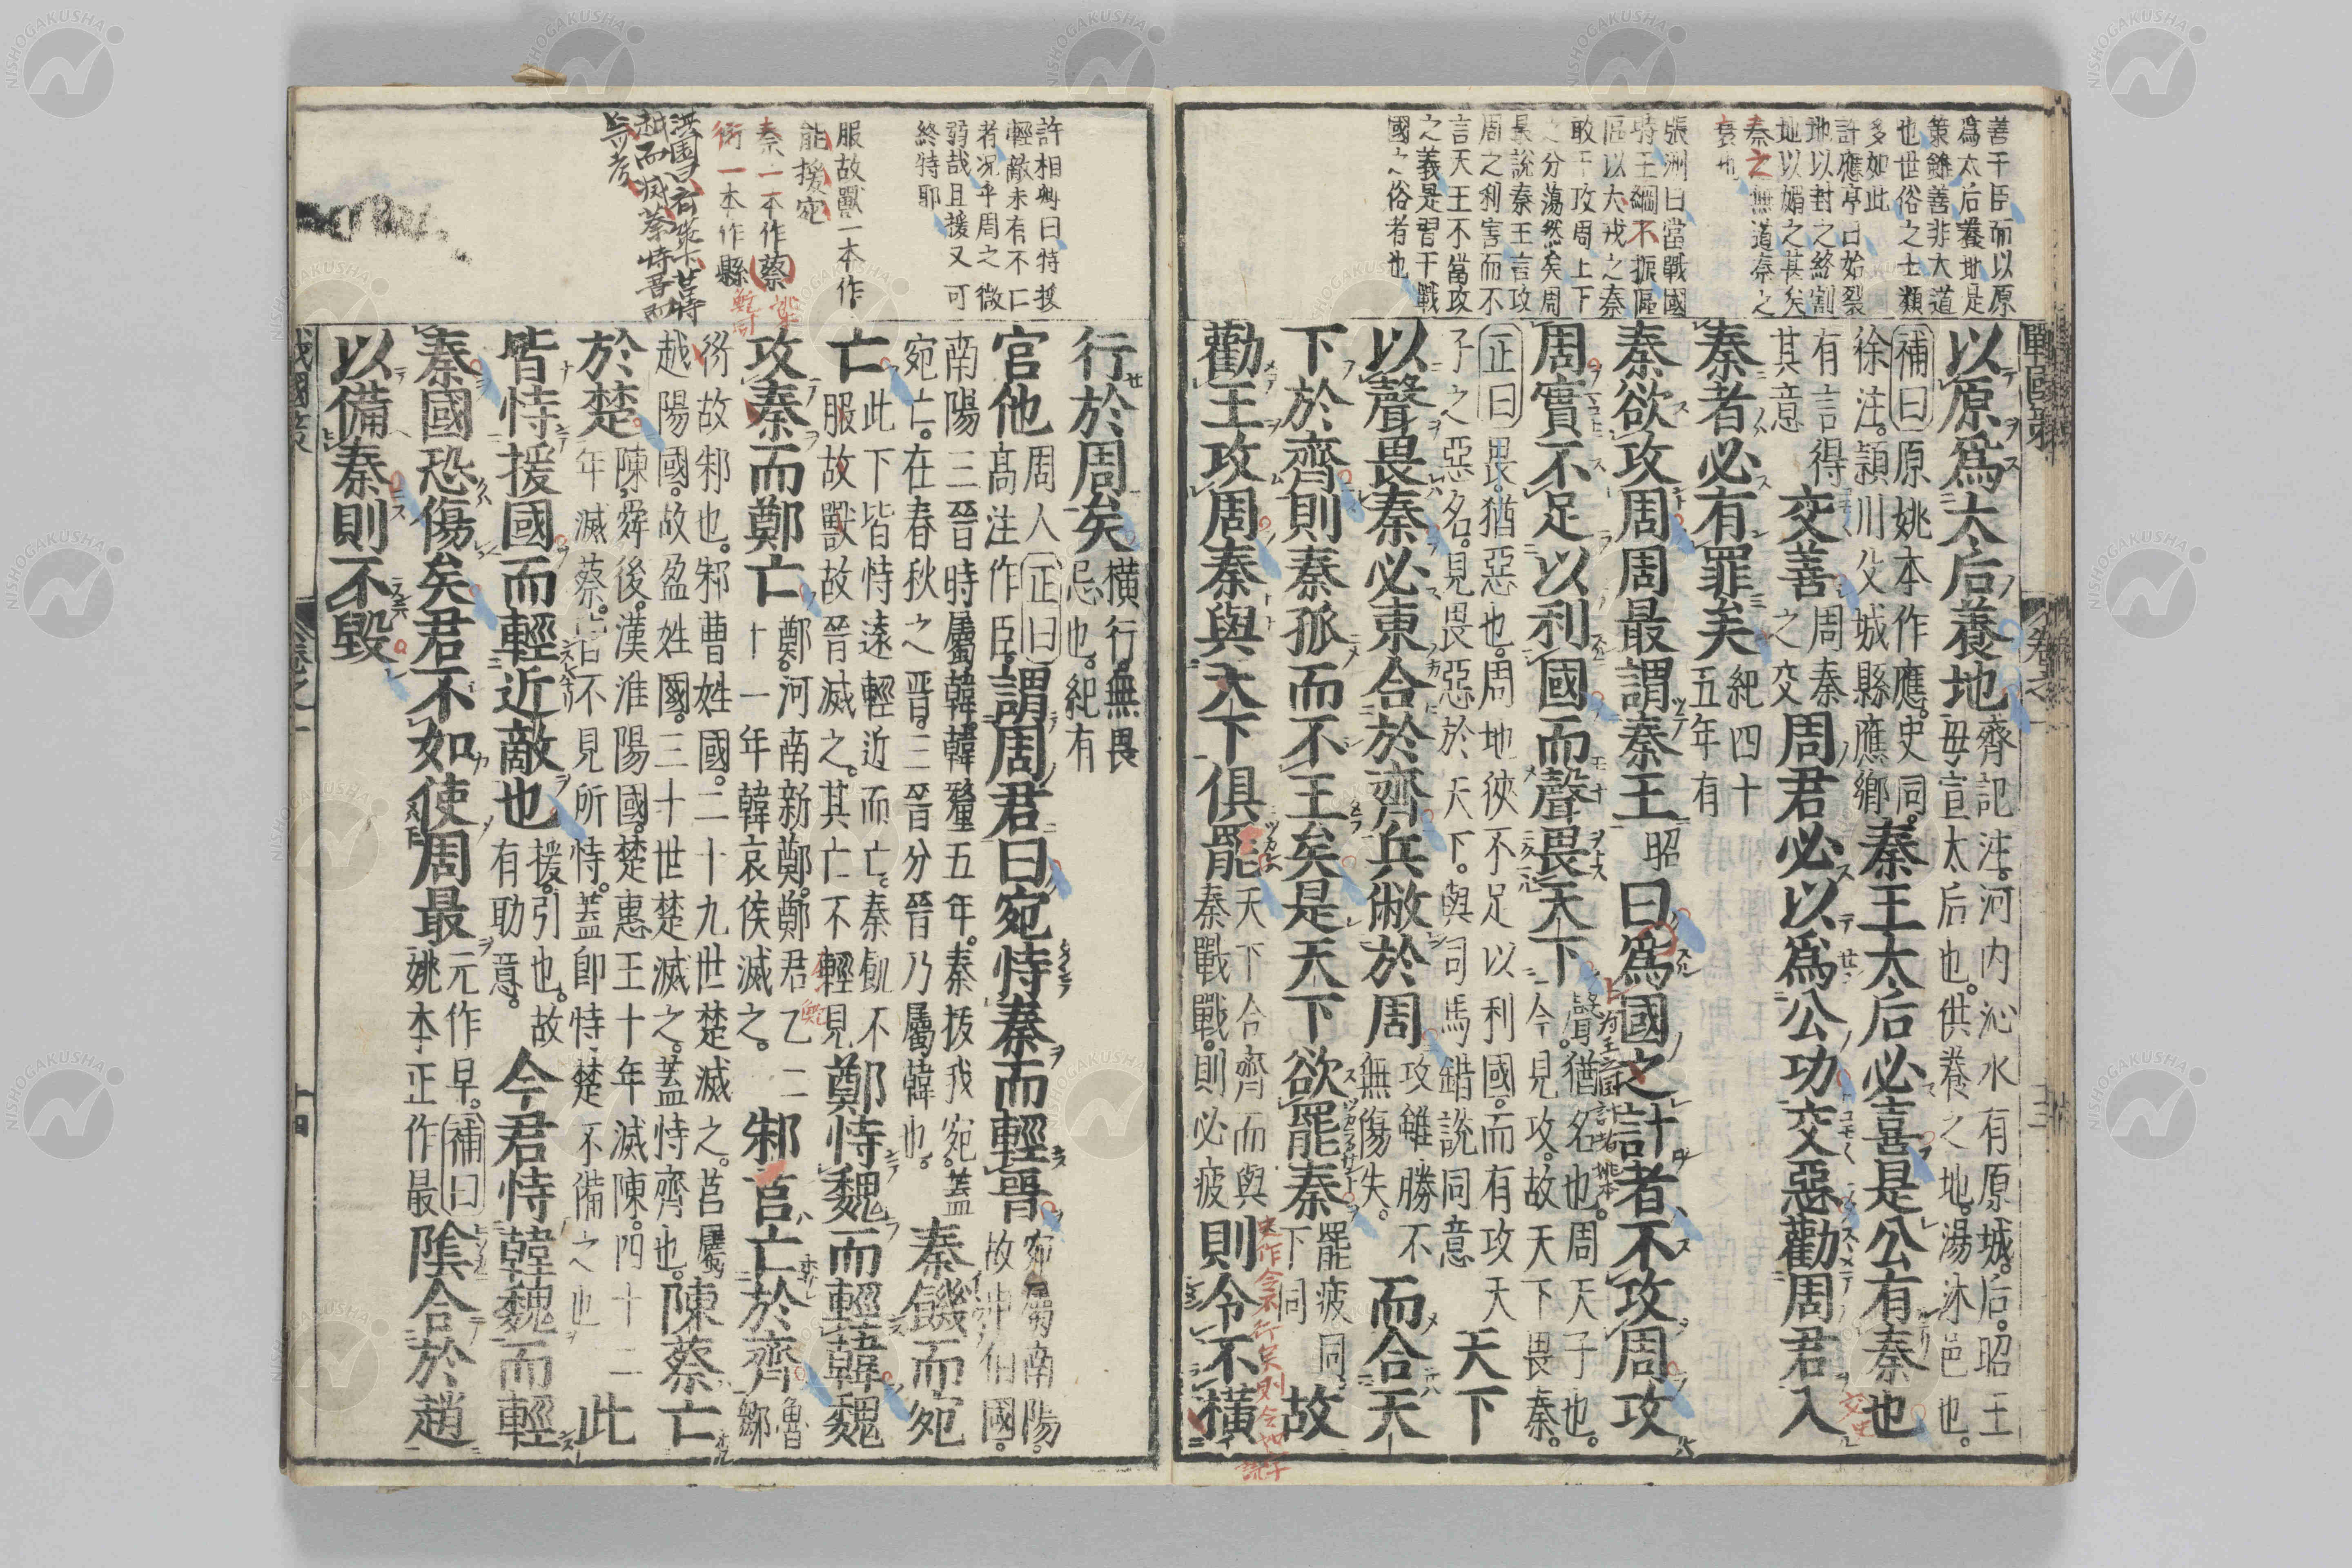 戰國策
卷之一
十三
善于臣而以原
爲太后養地是
策雖善非大道
也世俗之士類
多如此
許應亭曰始裂
地以封之終割
地以媚之甚矣
秦之無道秦之
衰也
張洲曰當戰國
時王綱不振區
區以犬戎之秦
敢于攻周上下
之分蕩然矣周
最說秦王言攻
周之利害而不
言天王不當攻
之義是習于戰
國之俗者也
以原爲太后養地
齊記注河内沁水有原城后昭王
毋宣太后也供養之地湯沐邑也
補曰原姚本作應史同
徐注潁川父城縣應鄉
秦王太后必喜是公有秦也
有言得
其意
交善
周秦
之交
周君必以爲公功交惡勸周君入
秦者必有罪矣
紀四十
五年有
秦欲攻周周最謂秦王
昭
曰爲國之計者不攻周攻
周實不足以利國而聲畏天下
聲猶名也周天子也
今見攻故天下畏秦
正曰畏猶惡也周地狹不足以利國而有攻天
子之惡名見畏惡於天下與司馬錯說同意
天下
以聲畏秦必東合於齊兵敝於周
攻雖勝不
無傷失
而合天
下於齊則秦孤而不王矣是天下欲罷秦
罷疲同
下同
故
勸王攻周秦與天下俱罷
天下合齊而與
秦戰戰則必疲
則令不橫
許相卿曰特援
輕敵未有不亡
者況乎周之微
弱哉且援又可
終特耶
服故獸一本作
能援宛
秦一本作蔡
衍一本作縣
行於周矣
橫行無畏
忌也紀有
官他
周人
高注作臣
正曰
謂周君曰宛恃秦而輕晉
宛屬南陽
故申伯國
南陽三晉時屬韓韓釐五年秦拔我宛蓋
宛亡在春秋之晉三晉分晉乃屬韓也
秦饑而宛
亡
此下皆恃遠輕近而亡秦飢不
服故獸故晉滅之其亡不輕見
鄭恃魏而輕韓魏
攻秦而鄭亡
鄭河南新鄭鄭君乙二
十一年韓哀侯滅之
邾莒亡於齊
魯
鄒
衍故邾也邾曹姓國二十九世楚滅之莒屬
越陽國故盈姓國三十世楚滅之蓋恃齊也
陳蔡亡
於楚
陳舜後漢淮陽國楚惠王十年滅陳四十二
年滅蔡記不見所恃蓋卽恃楚不備之也
此
皆恃援國而輕近敵也
援引也故
有助意
今君恃韓魏而輕
秦國恐傷矣君不如使周最
元作早補曰
姚本正作最
陰合於趙
以備秦則不毀
戰國策
卷之一
十四